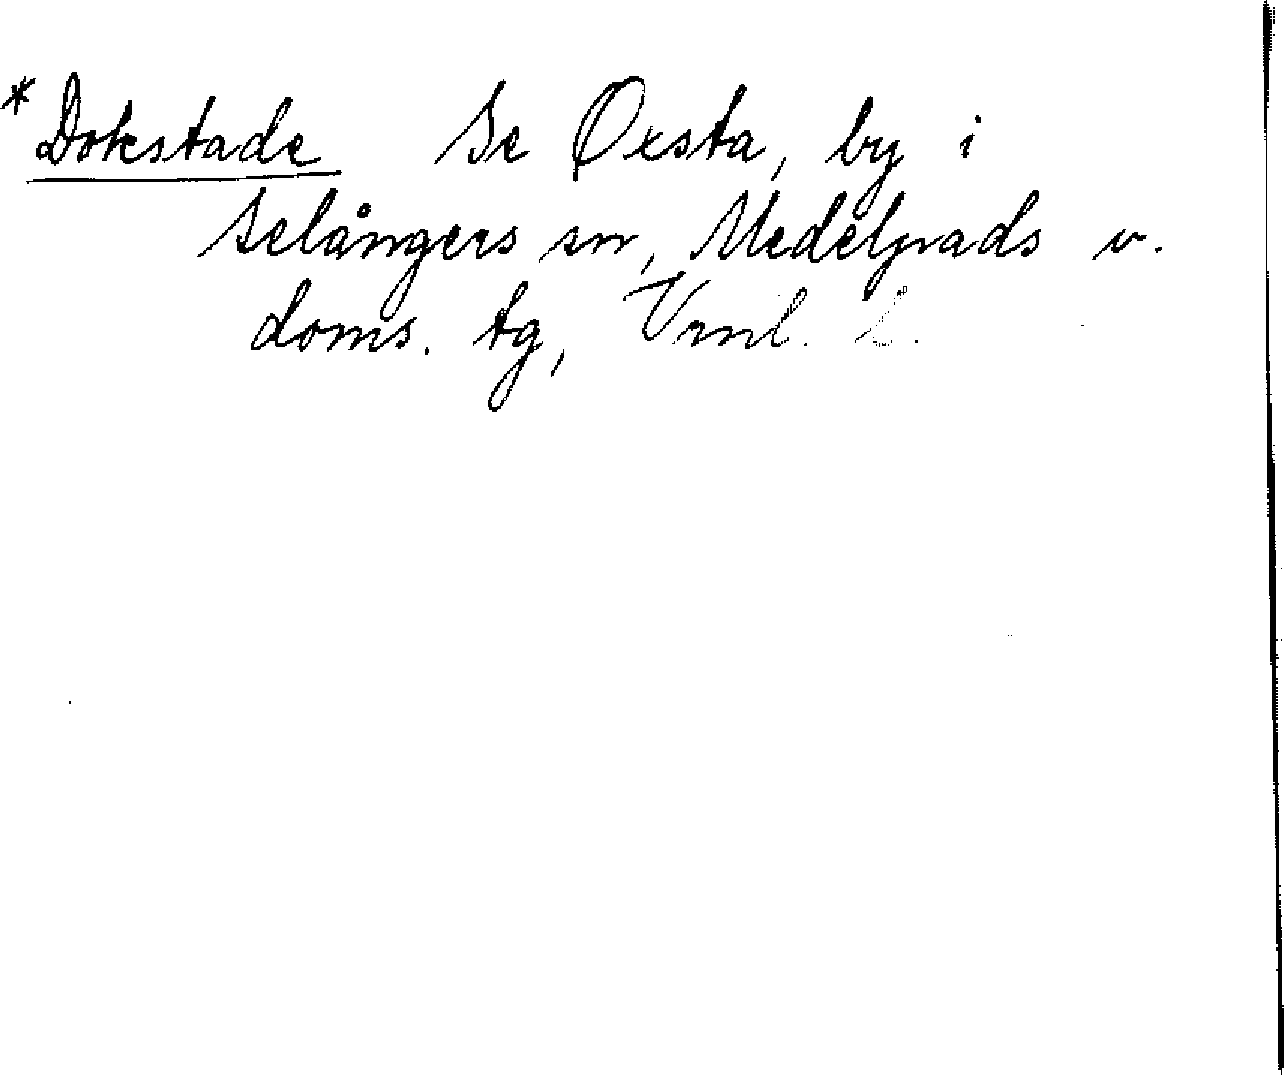 *Dokstade Se Oxsta, by i
Selångers sn, Medelpads v.
doms. tg, Vrnl. L.